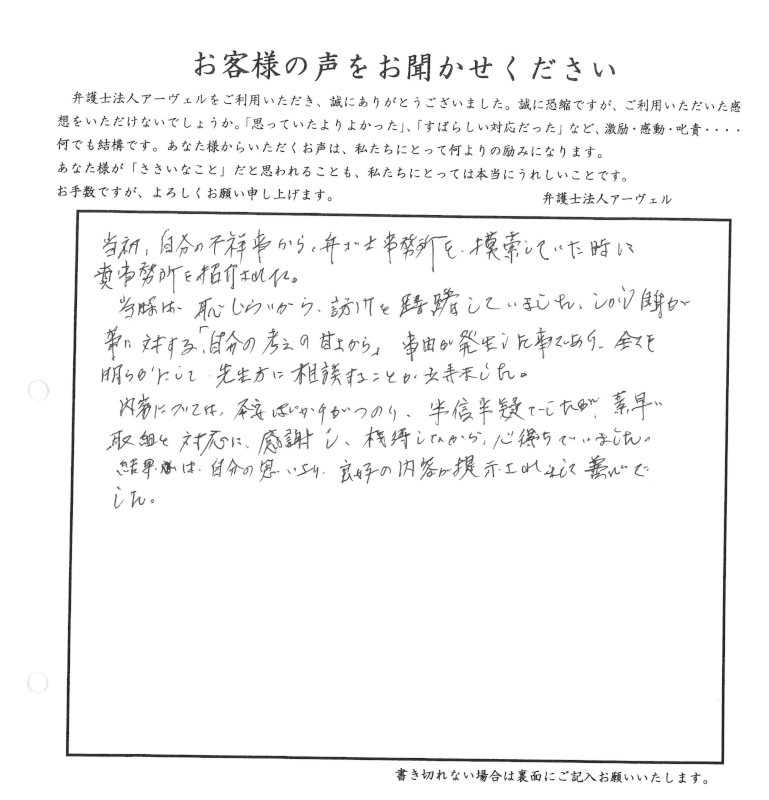 お客様の声をお聞かせください
弁護士法人アーヴェルをご利用いただき、誠にありがとうございました。誠に恐縮ですが、ご利用いただいた感
想をいただけないでしょうか。「思っていたよりよかった」、「すばらしい対応だった」など、激励・感動・叱責・・・・
何でも結構です。あなた様からいただくお声は、私たちにとって何よりの励みになります。
あなた様が「ささいなこと」だと思われることも、私たちにとっては本当にうれしいことです。
お手数ですが、よろしくお願い申し上げます。
弁護士法人アーヴェル
当初、自分の不祥事から、弁ゴ士事務所を、模索していた時に
貴事務所を紹介された。
当時は、恥じらいから、訪問を躊躇していました。しかし
対する「自分の考えの甘さから」事由が発生した事であり、全てを
明らかにして、先生方に相談することが出来ました。
内容については、不安ばかりがつのり、半信半疑でしたが、素早い
取組と対応に、感謝し、ながら、心待ちていました。
結果は、自分の思いより、良好の内容が提示され
した。
書き切れない場合は裏面にご記入お願いいたします。